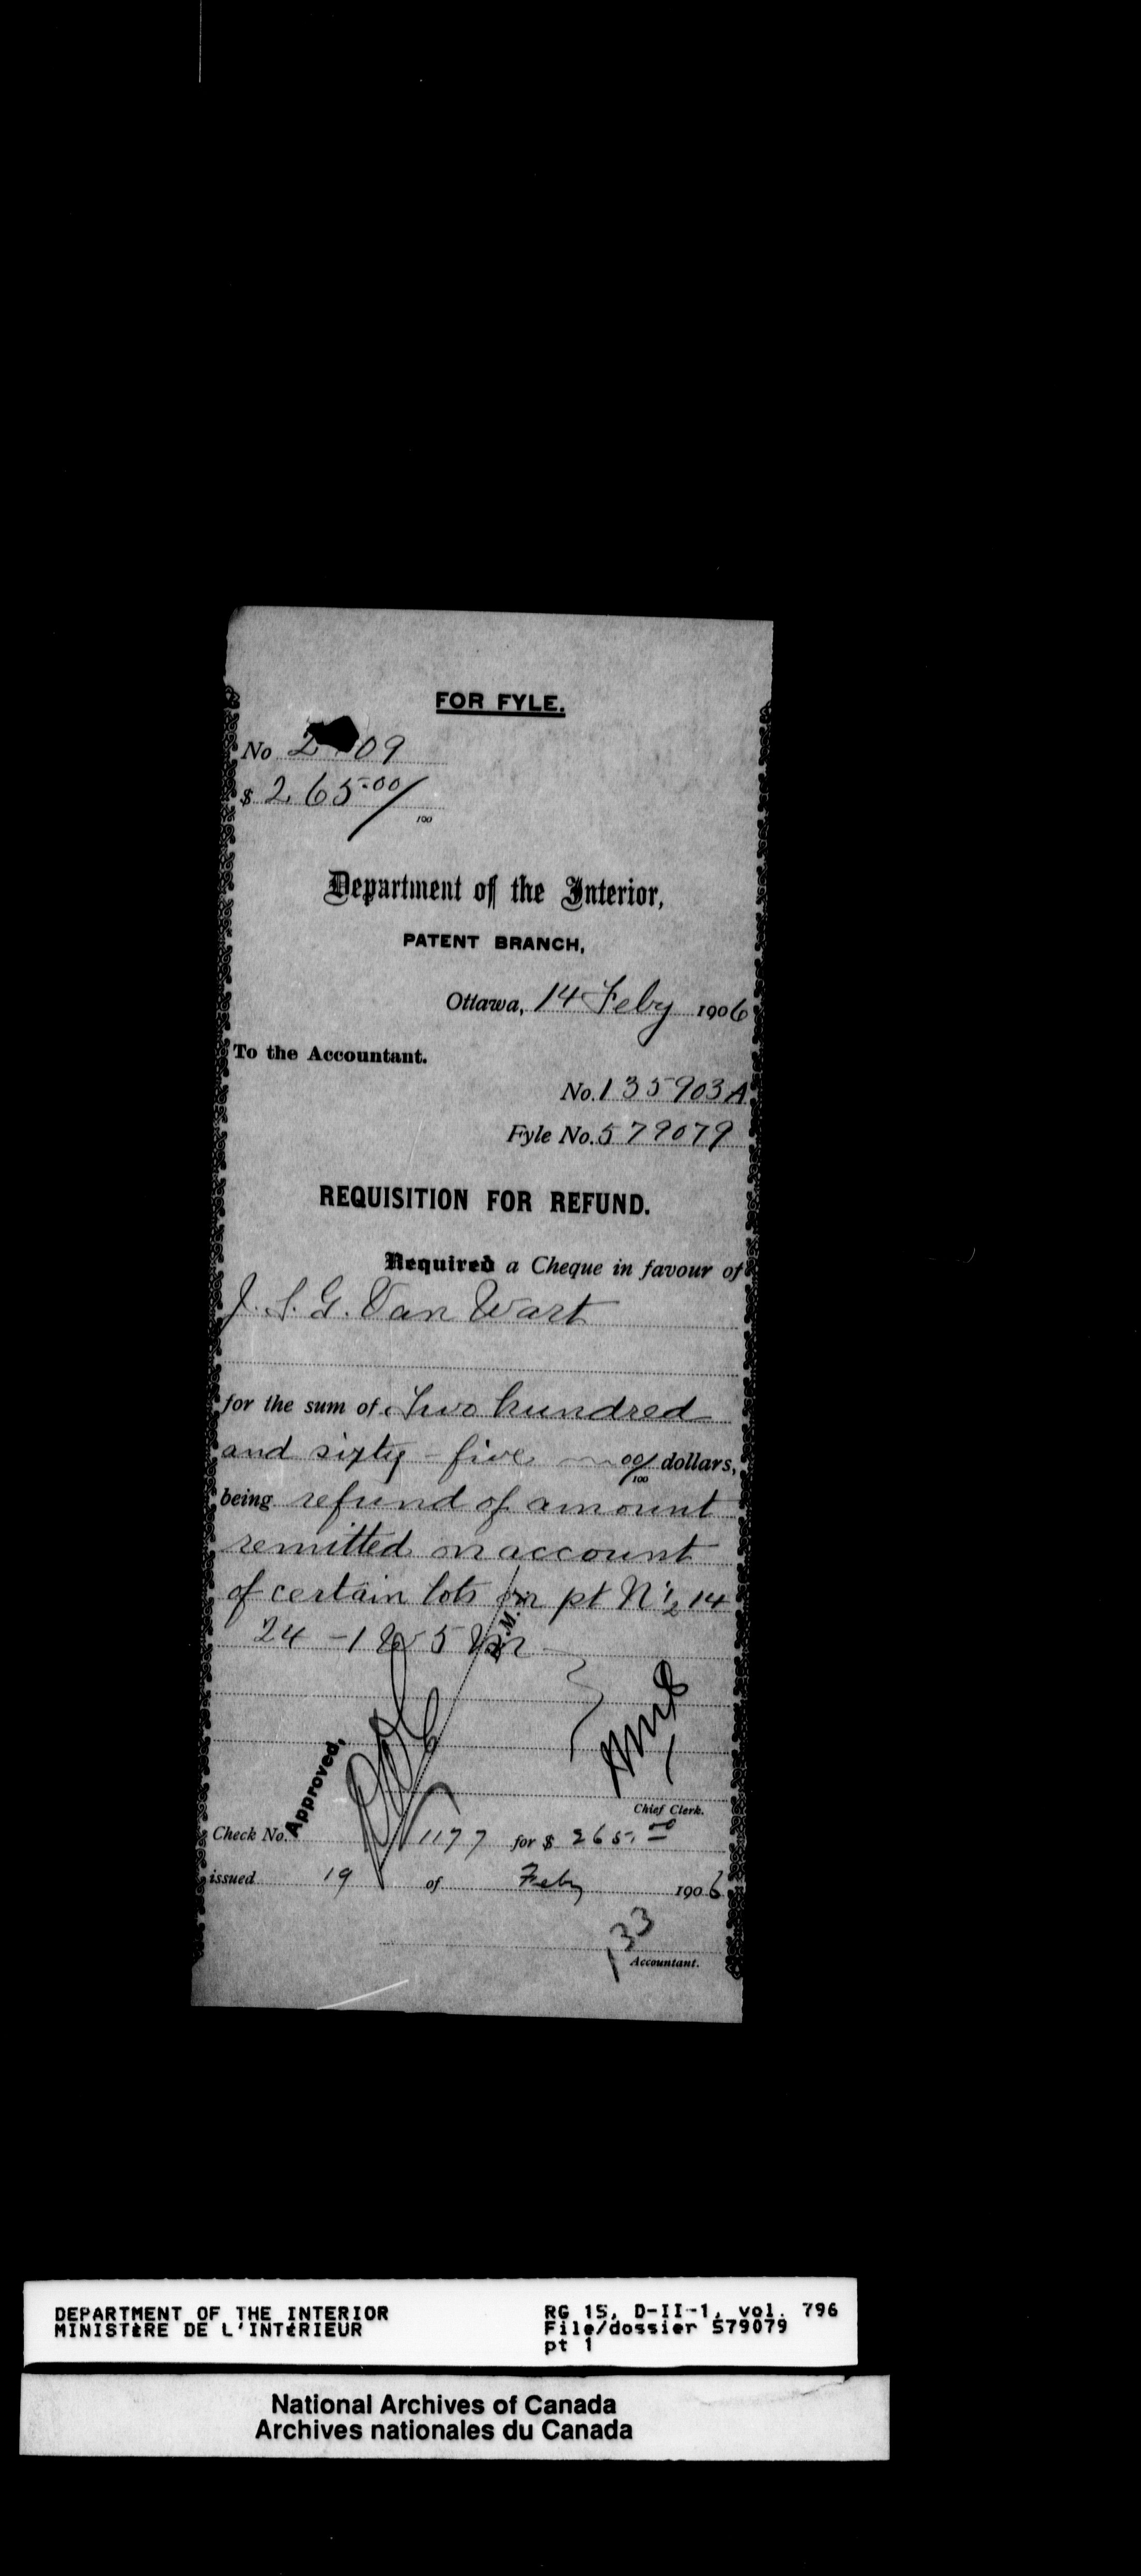 FOR FYLE.
No 2 09
$ 265.00/100
Department of the Interior,
PATENT BRANCH,
Ottawa, 14 Feby 1906
To the Accountant.
No. 135903A
Fyle No. 579079
REQUISITION FOR REFUND.
Required a Cheque in favour of
J. S. G. Van Wart
for the sum of Two hundred
and sixty-five 00/100 dollars,
being refund of amount
remitted on account
of certain lots in pt N½ 14
24 - 1 W 5 M
Approved,
Chief Clerk.
Check No. 1177 for $ 265.00
issued 19 of Feby 1906
133
Accountant.
DEPARTMENT OF THE INTERIOR
MINISTÈRE DE L'INTÉRIEUR
RG 15, D-II-1, vol. 796
File/dossier 579079
pt 1
National Archives of Canada
Archives nationales du Canada